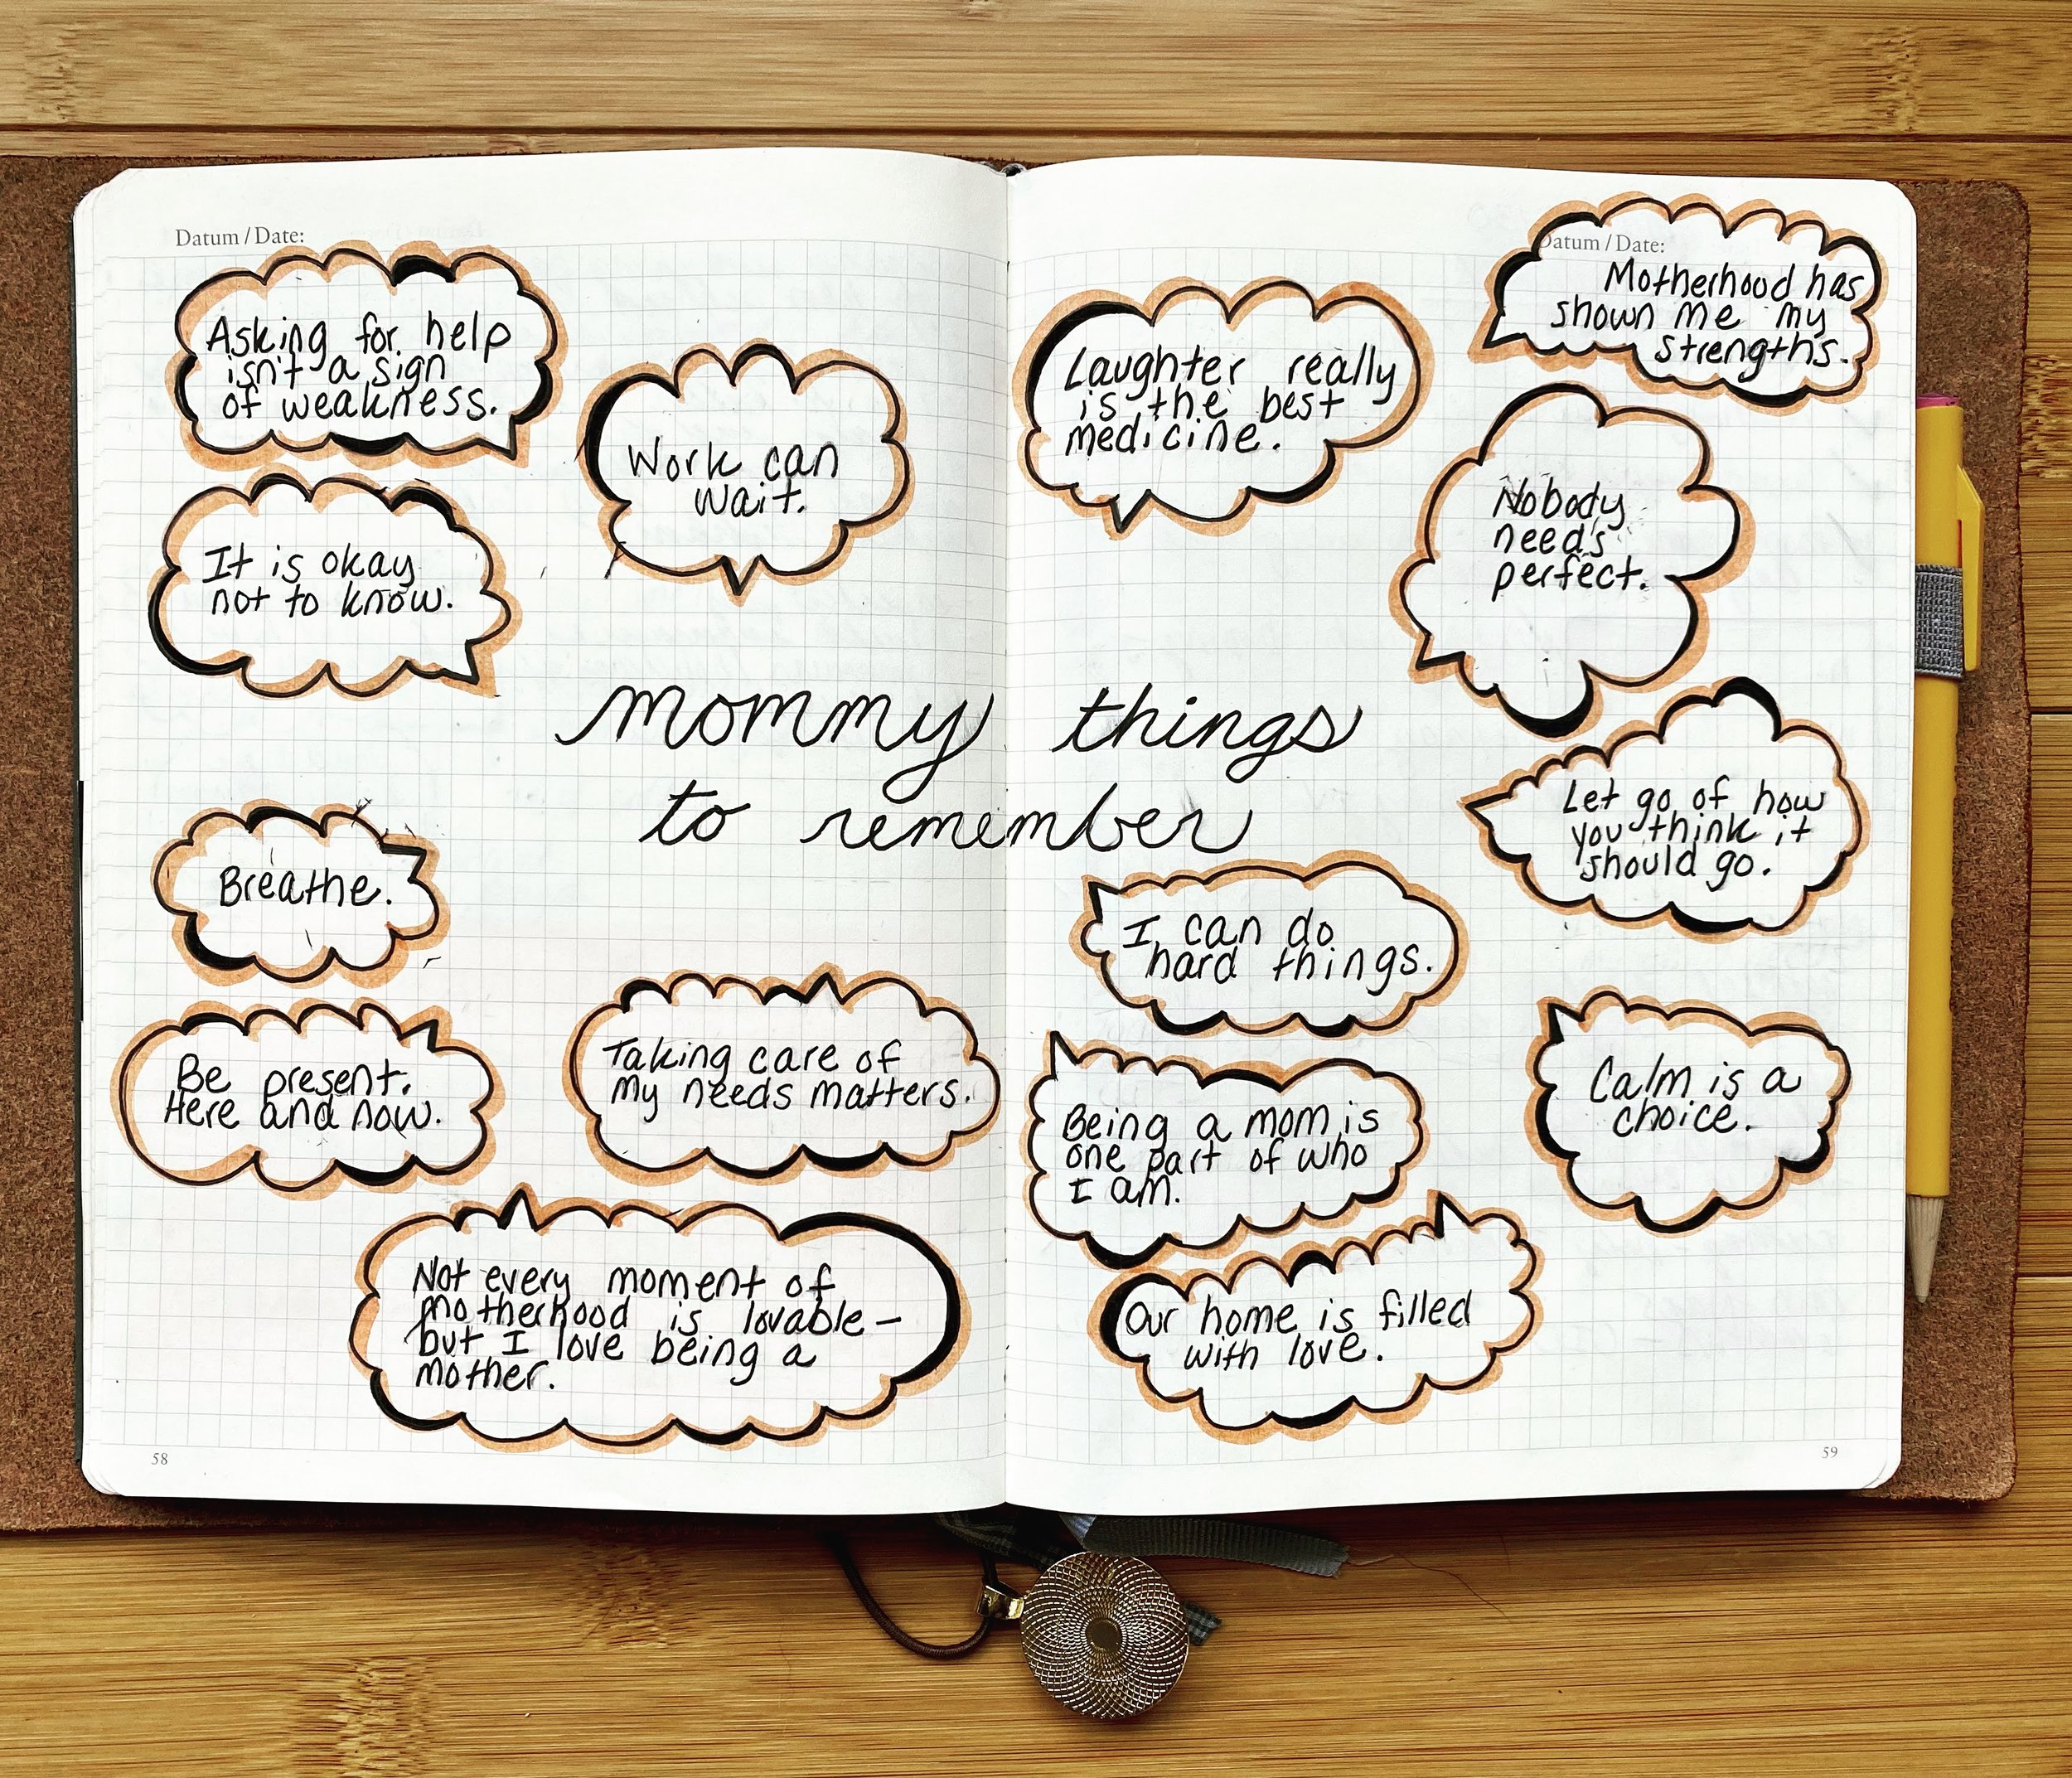 Datum / Date:
Asking for help
isn't a sign
of weakness.
Work can
wait.
It is okay
not to know.
Datum / Date:
Motherhood has
shown me my
strengths.
Laughter really
is the best
medicine.
Nobody
needs
perfect.
mommy things
to remember
Let go of how
you think it
should go.
Breathe.
I can do
hard things.
Be present.
Here and now.
Taking care of
my needs matters.
Being a mom is
one part of who
I am.
Calm is a
choice.
Not every moment of
motherhood is lovable-
but I love being a
mother.
Our home is filled
with love.
58
59